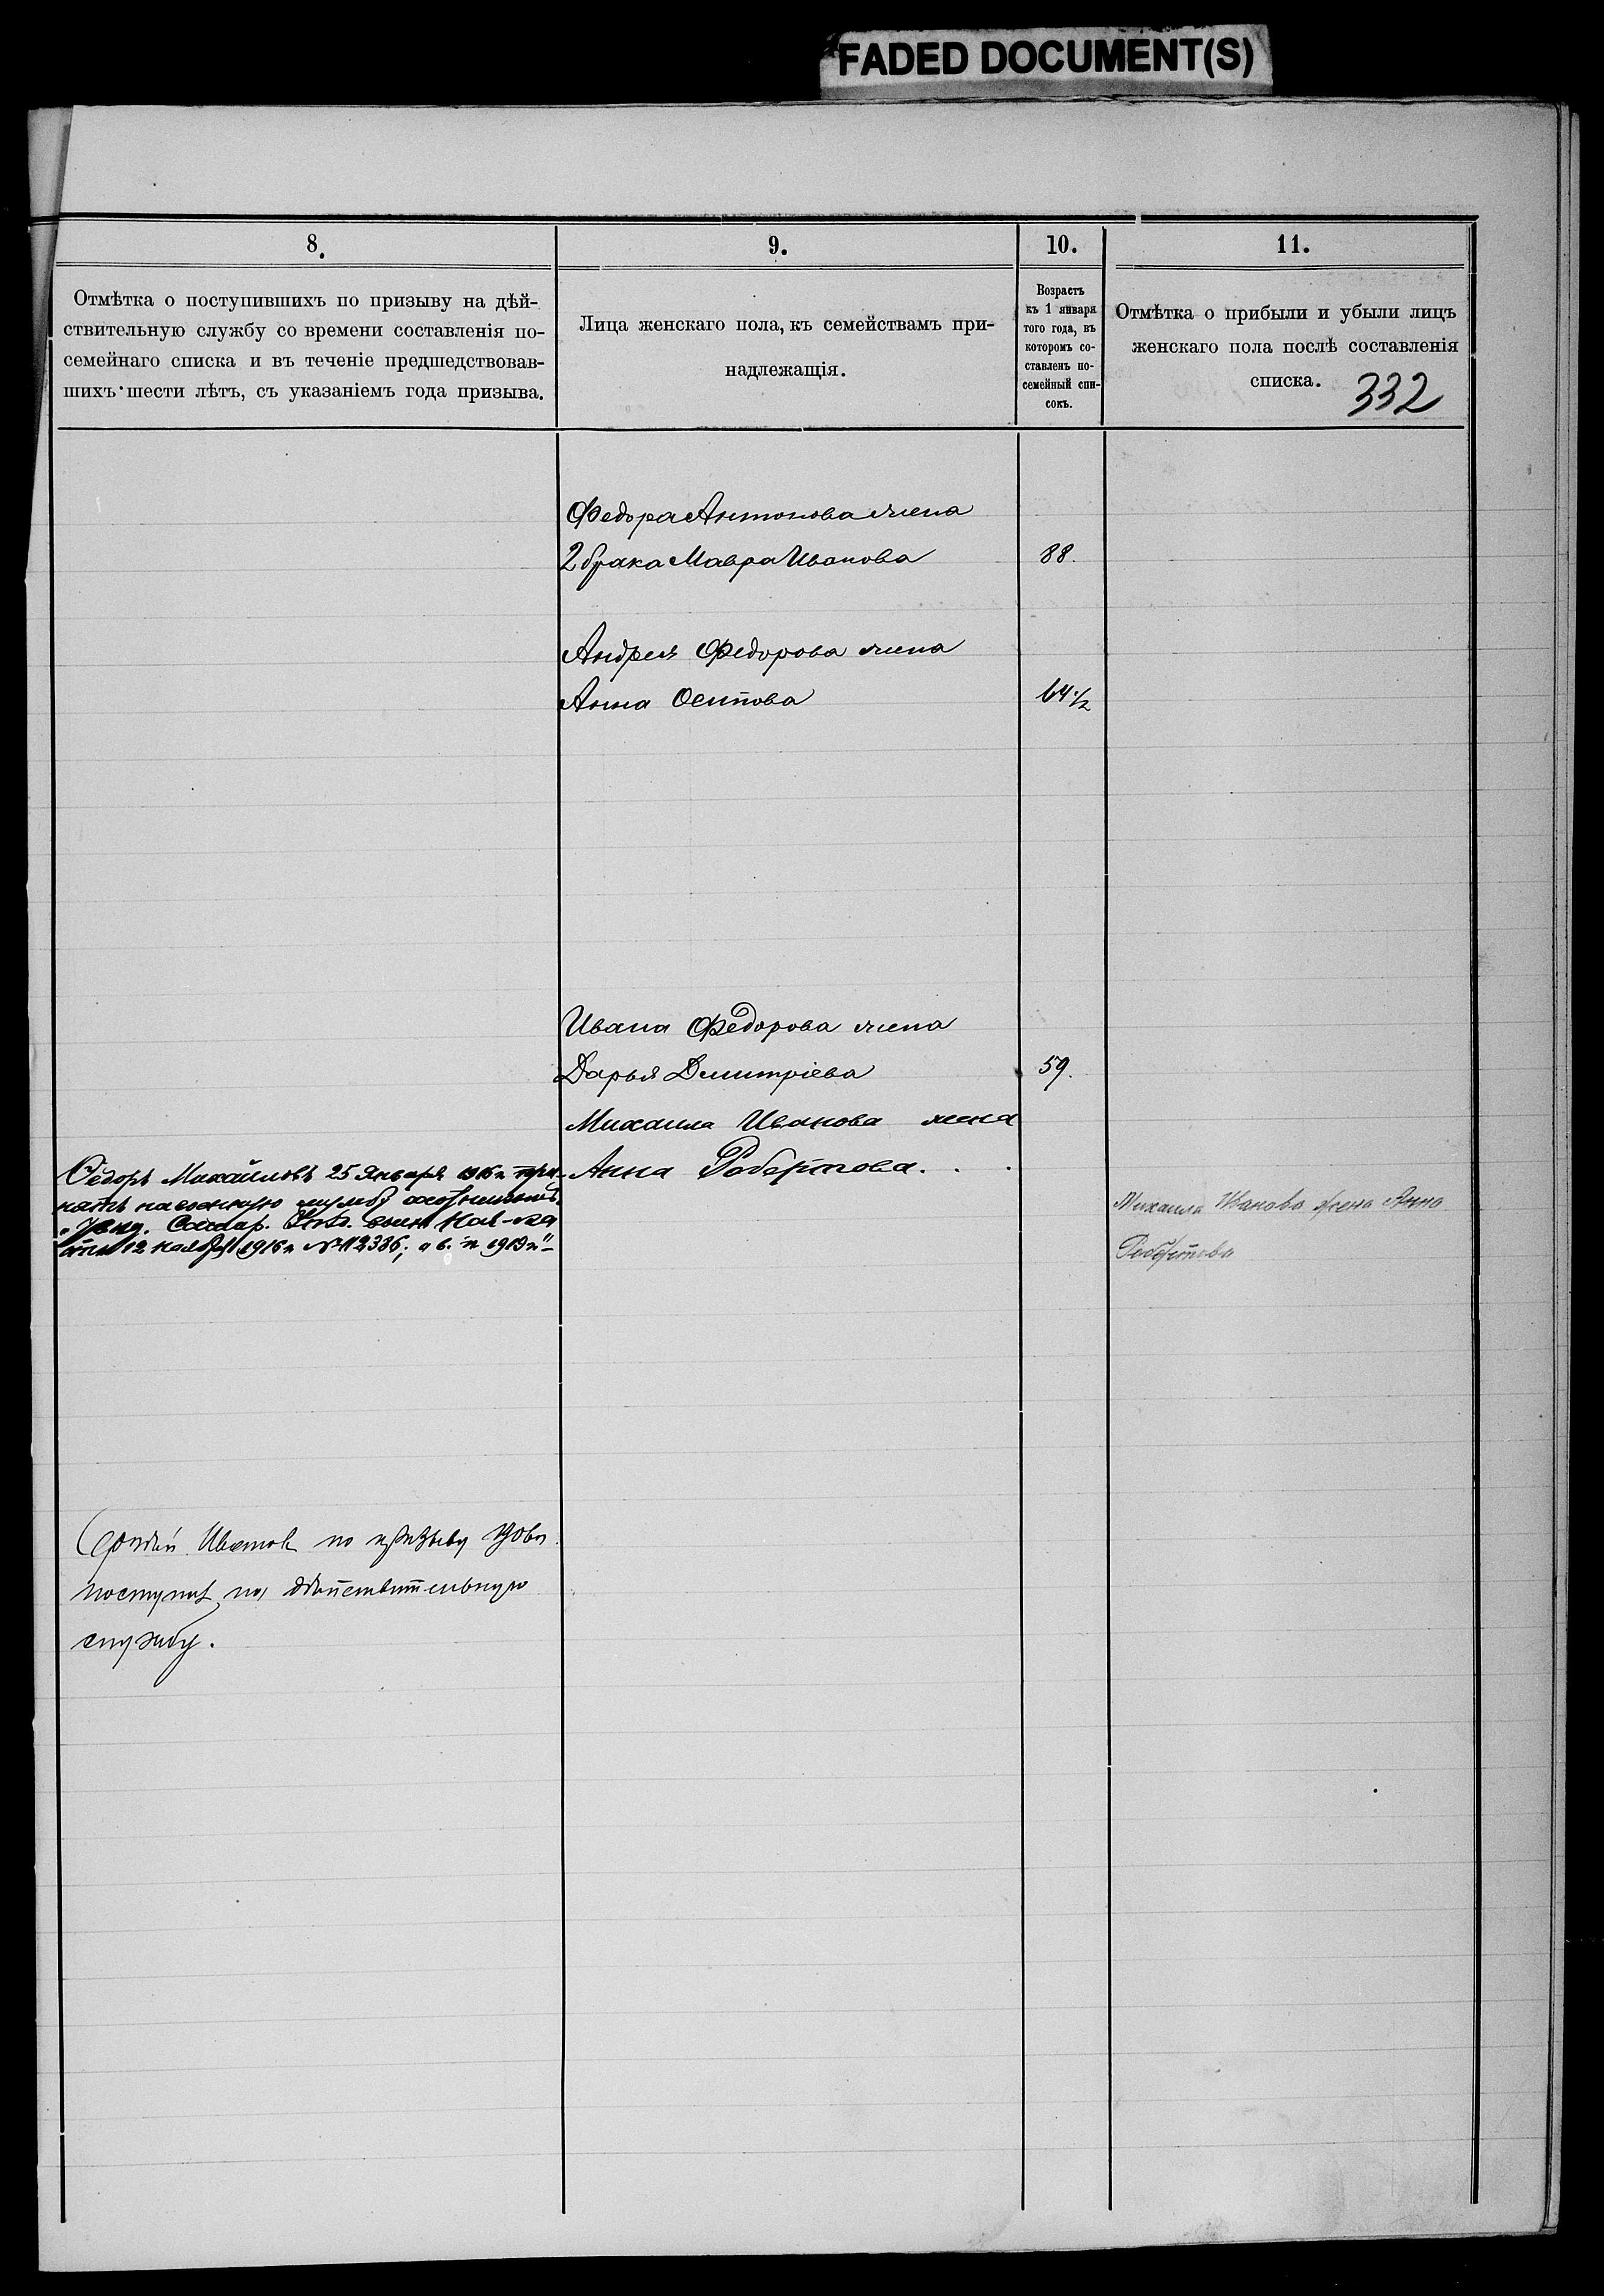 FADED DOCUMENT(S)
8.
9.
10.
11.
Отмѣтка о поступившихъ по призыву на дѣй-
ствительную службу со времени составленія по-
семейнаго списка и въ теченіе предшедствовав-
шихъ шести лѣтъ, съ указаніемъ года призыва.
Лица женскаго пола, къ семействамъ при-
надлежащія.
Возрастъ
къ 1 января
того года, въ
которомъ со-
ставленъ по-
семейный спи-
сокъ.
Отмѣтка о прибыли и убыли лицъ
женскаго пола послѣ составленія
списка.
332
Федора Антонова жена
2 брака Мавра Иванова 88.
Андрея Федорова жена
Анна Осипова 64 1/2
Ивана Федорова жена
Дарья Дмитріева 59.
Михаила Иванова жена
Анна Робертова
Ѳедоръ Михайловъ 25 Января 1916 г. при-
нятъ на военную службу охотникомъ
12 ноября 1916 г. № 112386;
Михаила Иванова жена Анна
Робертова
Сергѣй по призыву
поступилъ на дѣйствительную
службу.